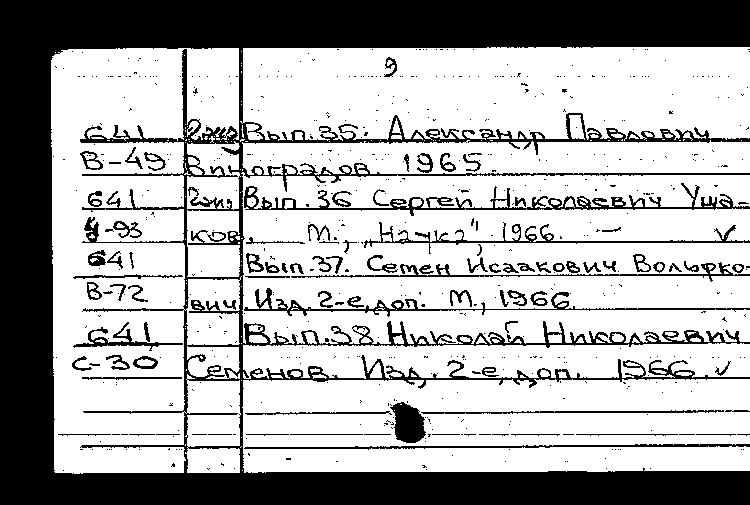 9
641 2экз Вып.35. Александр Павлович
В-49 Виноградов. 1965.
641 2экз. Вып.36 Сергей Николаевич Уша-
У-93 ков. М., „Наука", 1966. — ✓
641 Вып.37. Семен Исаакович Вольфко-
В-72 вич. Изд. 2-е, доп. М., 1966.
641 Вып.38. Николай Николаевич
С-30 Семенов. Изд. 2-е, доп. 1966. ✓